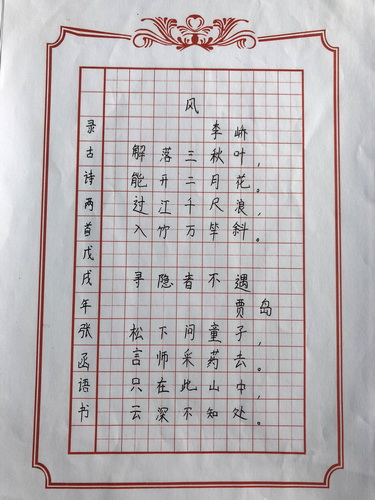 风
李峤
解落三秋叶，
能开二月花。
过江千尺浪，
入竹万竿斜。
寻隐者不遇
贾岛
松下问童子，
言师采药去。
只在此山中，
云深不知处。
录古诗两首戊戌年张函语书